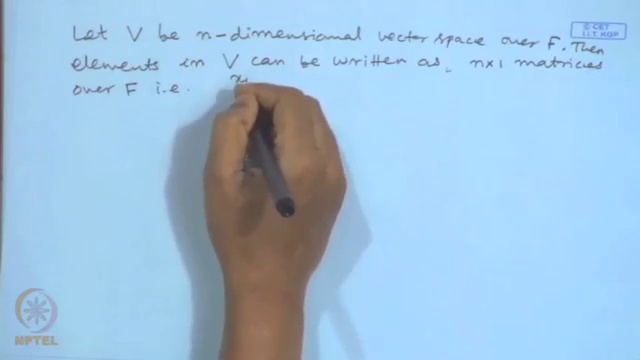 Let V be n-dimensional vector space over F. Then
elements in V can be written as, n×1 matrices
over F i.e.
© CET
I.I.T. KGP
NPTEL